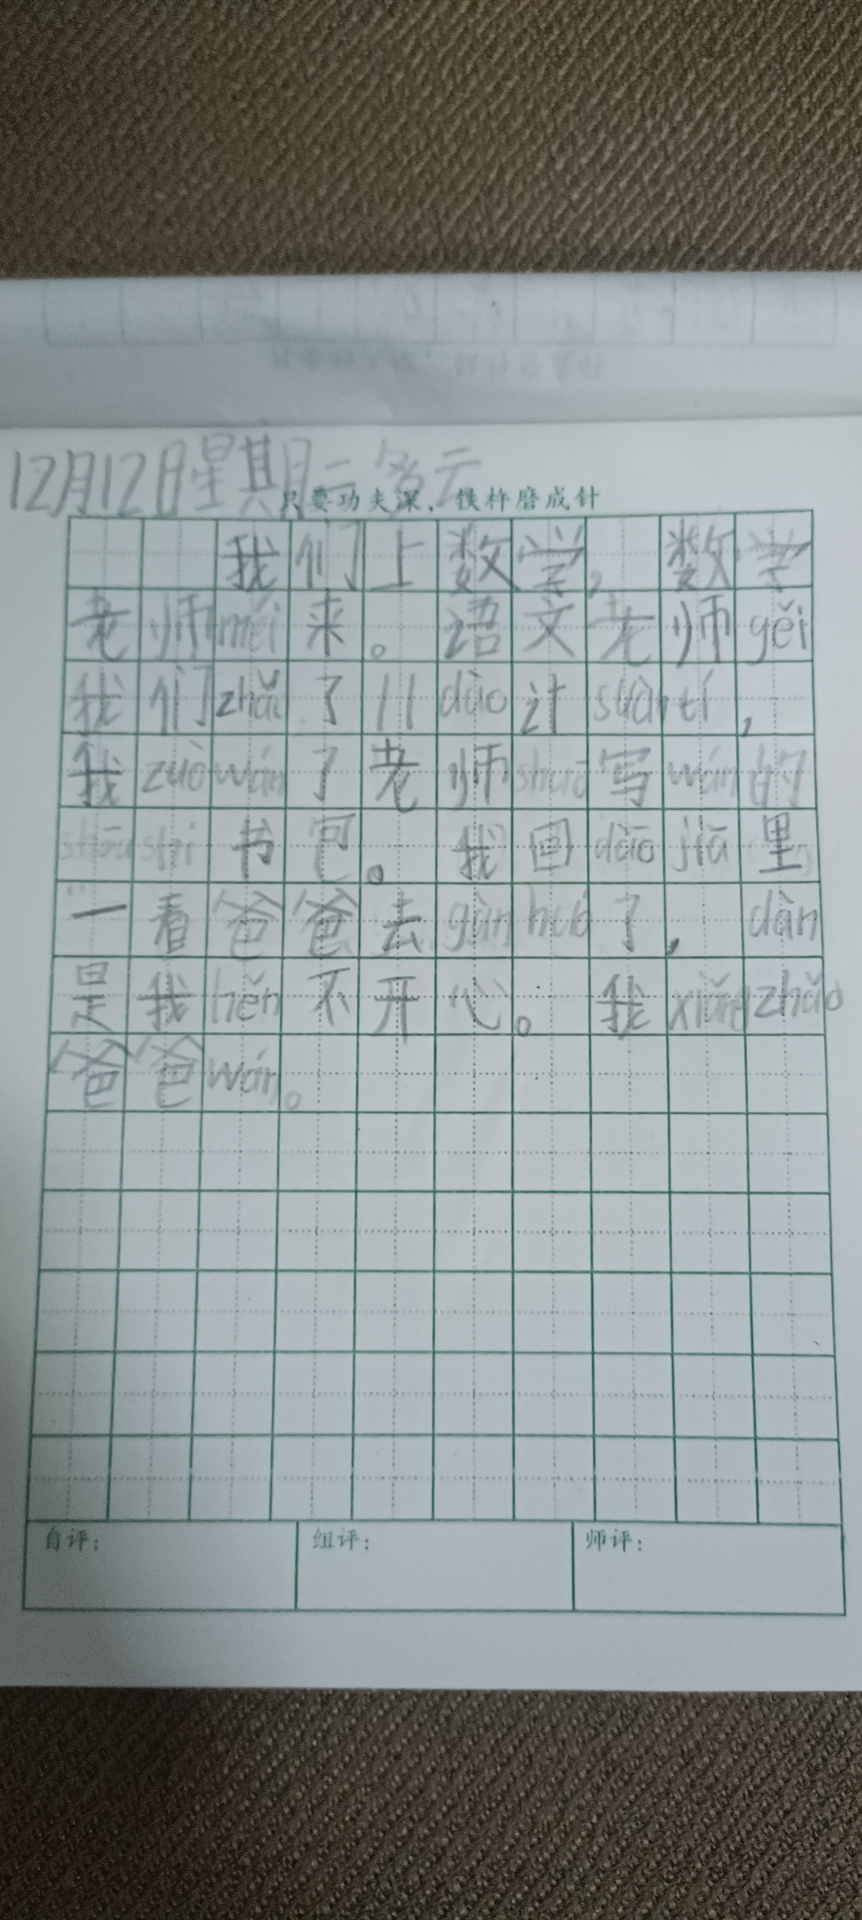 12月12日星期二多云
只要功夫深，铁杵磨成针
我们上数学，数学
老师méi来。语文老师gěi
我们zhǎo了八dào计suàn tí，
我zuò wán了老师shuō写wán的
shōu shi书包。我回dào jiā里
一看爸爸去gàn huó了，dàn
是我hěn不开心。我xiǎng zhǎo
爸爸wán。
自评： 组评： 师评：